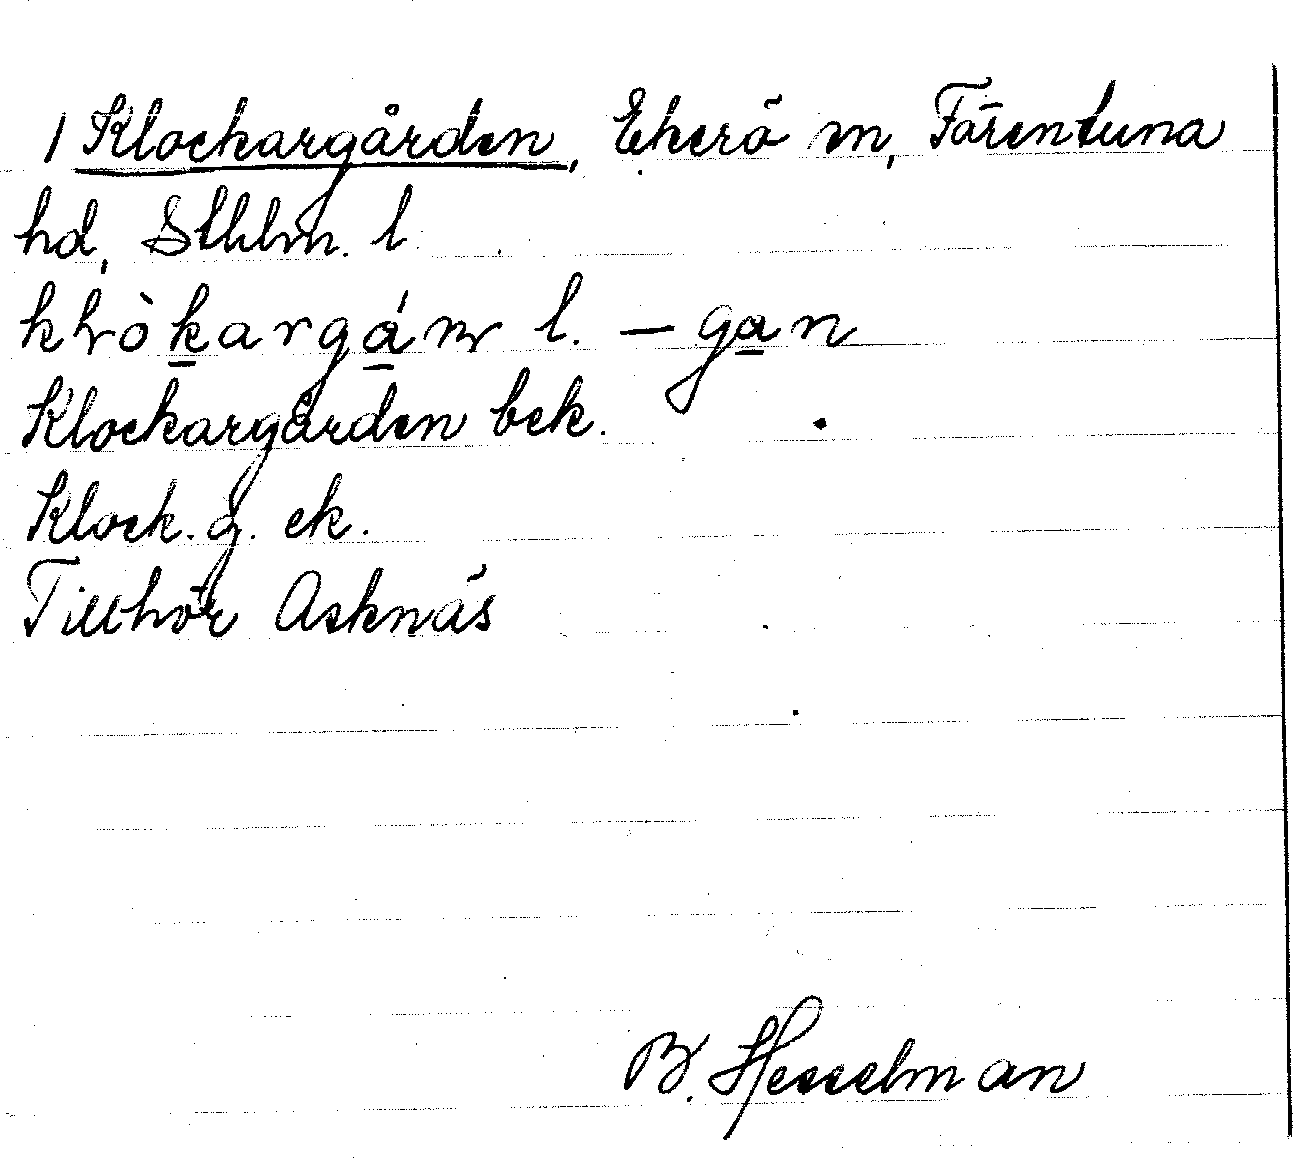 1 Klockargården, Ekerö sn, Färentuna
hd, Sthlm. l
l. – gan
Klockargården bek.
Klock.g. ek.
Tillhör Asknäs
B. Hesselman